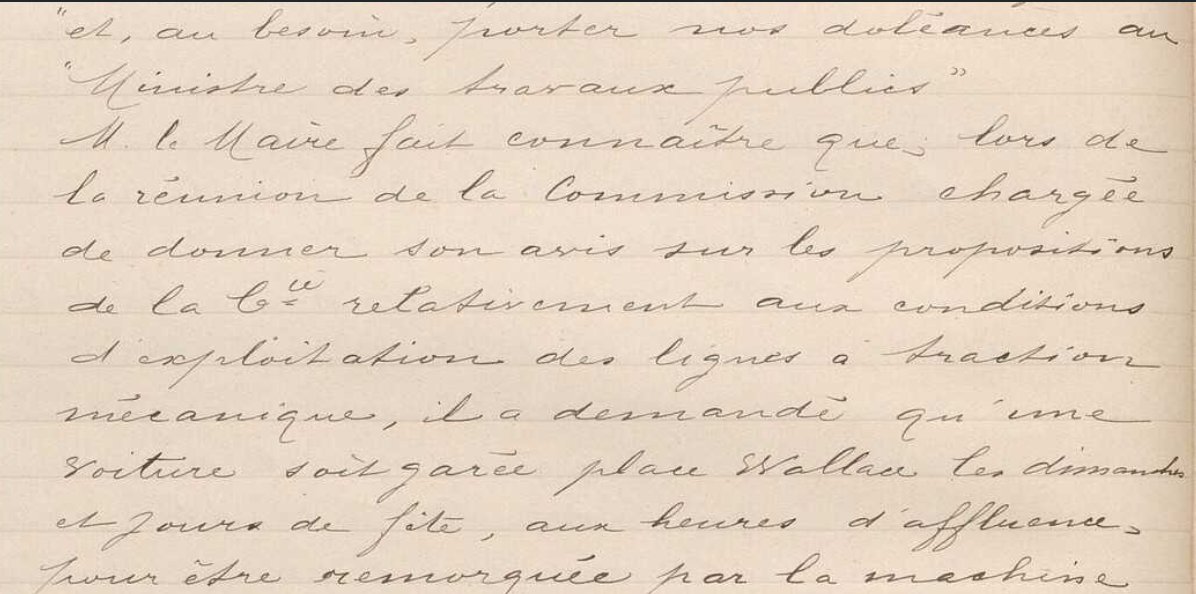 "et, au besoin, porter nos doléances au
"Ministre des travaux publics"
M. le Maire fait connaître que, lors de
la réunion de la Commission chargée
de donner son avis sur les propositions
de la Cie relativement aux conditions
d'exploitation des lignes à traction
mécanique, il a demandé qu'une
voiture soit garée place Wallace les dimanches
et jours de fête, aux heures d'affluence,
pour être remorquée par la machine